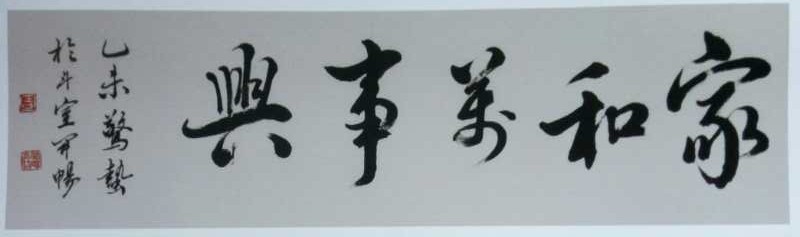 家和萬事興
乙未驚蟄
於斗室開暢